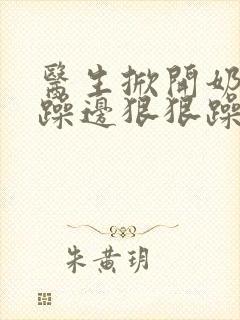 醫生掀開奶
躁邊狠狠躁
朱黄玥